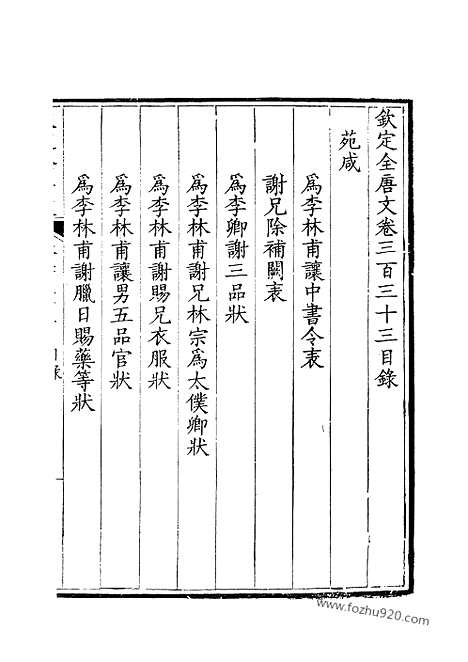 欽定全唐文卷三百三十三目錄
苑咸
為李林甫讓中書令表
謝兄除補闕表
為李卿謝三品狀
為李林甫謝兄林宗為太僕卿狀
為李林甫謝賜兄衣服狀
為李林甫讓男五品官狀
為李林甫謝臘日賜藥等狀
目錄
一
www.fozhu920.com